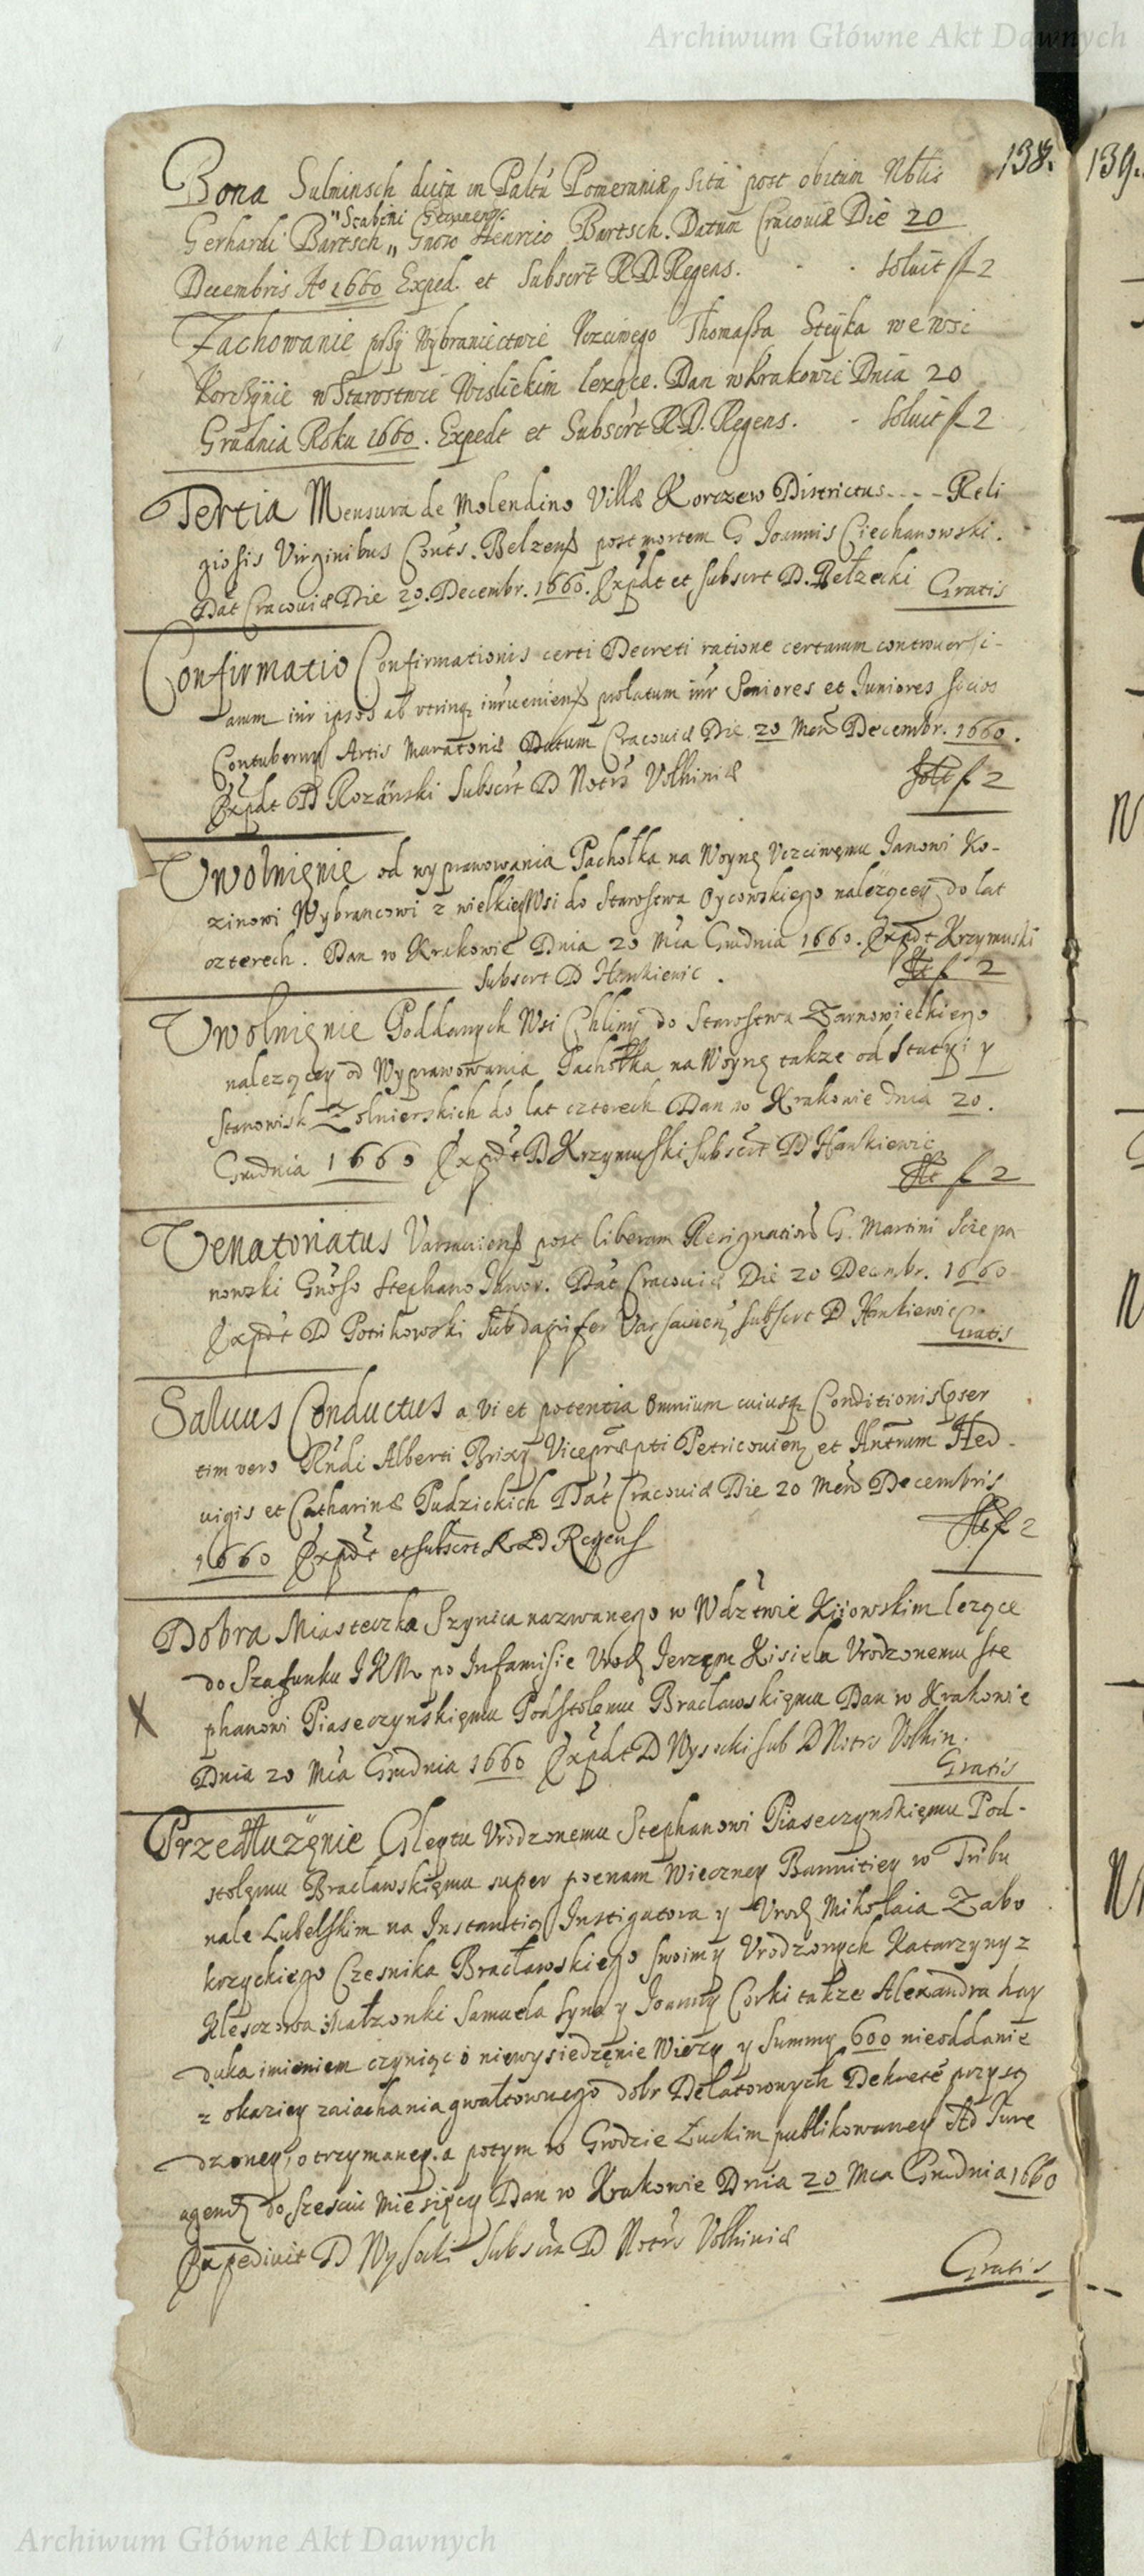 Archiwum Główne Akt Dawnych
138.
139.
Bona Sulminsch dicta in Paltu Pomeraniæ sita post obitum Nblis
"Scabini Gedanens.
Gerhardi Bartsch „ Gnoso Henrico Bartsch. Datum Cracoviæ Die 20
Decembris Ao 1660 Exped. et Subscrit R.D. Regens. - - Soluit f 2
Zachowanie przy Wybraniectwie Vczciwego Thomassa Steyka we wsi
w Starostwie Wislickim lezące. Dan w Krakowie Dnia 20
Grudnia Roku 1660. Expedt et Subscrt R.D. Regens. - Soluit f 2
Tertia Mensura de Molendino Villæ Korczew Districtus - - - - Reli
giosis Virginibus Conts. Belzens post mortem G Joannis Ciechanowski.
Dat Cracoviæ Die 20. Decembr. 1660. Expdt et subscrt D. Bełzecki Gratis
Confirmatio Confirmationis certi Decreti ratione certarum controversi-
arum inr ipsos ab utrinq inruenien prolatum inr Seniores et Juniores socios
Contubernij Artis Muratoriæ Datum Cracoviæ Die 20 Mens Decembr. 1660.
Expdt D Rozanski Subscrt D Notrs Volhiniæ Solt f 2
Uwolnięnie od wyprawowania Pachołka na Woynę Vczciwęmu Janowi Ko-
zinowi Wybrancowi z wielkiey Wsi do Starostwa Oycowskiego nalezącey do lat
czterech. Dan w Krakowie Dnia 20 Mca Grudnia 1660. Expdt Krzymuski
Subscrt D Hankiewic. Slt f 2
Uwolnięnie Poddanych Wsi Chliny do Starostwa Zarnowieckiego
nalezącey od Wyprawowania Pachołka na Woynę takze od Stacyi y
Stanowisk Zolnierskich do lat czterech Dan w Krakowie dnia 20.
Grudnia 1660 Expdt D Krzymuski subscrt D Hankiewic
Slt f 2
Venatoriatus post liberam Resignation G. Martini Sczepa
nowski Gnoso Stephano Dat Cracoviæ Die 20 Decembr. 1660
Expdt D Subdapifer Varsavien subscrt D Hankiewic
Gratis
Salvus Conductus a vi et potentia omnium cuiusq Conditionis Oser
tim vero Rndi Alberti Brixy Viceprępti Petricovien et Hed-
vigis et Catharinæ Pudzickich Dat Cracoviæ Die 20 Mens Decembris
1660 Expdt et subscrt R D Regens Slt f 2
Dobra Miasteczka Szynica nazwanego w Wdztwie Kijowskim lezące
do Szafunku JKM po Infamisie Urod Jerzęm Kisiela Vrodzonemu Ste
X phanowi Piaseczynskięmu Podstolemu Bracławskięmu Dan w Krakowie
Dnia 20 Mca Grudnia 1660 Expdt D Wysocki sub D Notrs Volhin.
Gratis
Przedłuzęnie Gleytu Vrodzonemu Stephanowi Piaseczynskięmu Pod-
stolęmu Bracławskięmu super poenam Wieczney Bannitiey w Tribu
nale Lubelskim na Instantią Instigatora y Urod Mikołaia Zabo
krzyckiego Czesnika Bracławskiego swoimy Vrodzonych Katarzyny z
Kleszczowa Małzonki Samuela Syna y Joanny Corki takze Alexandra hay
duka imieniem czyniąc o niewysiedzęnie Wiezy y Summy 600 nieoddanie
z okaziey zaiachania gwałtownego dobr Delatorowych Dekrete przysą
dzoney, otrzymaney. a potym w Grodzie Łuckim publikowaney Ad Jure
agend do szesciu Miesięcy Dan w Krakowie Dnia 20 Mca Grudnia 1660
Expedivit D Wysocki Subscra D Notrs Volhiniæ
Gratis
Archiwum Główne Akt Dawnych